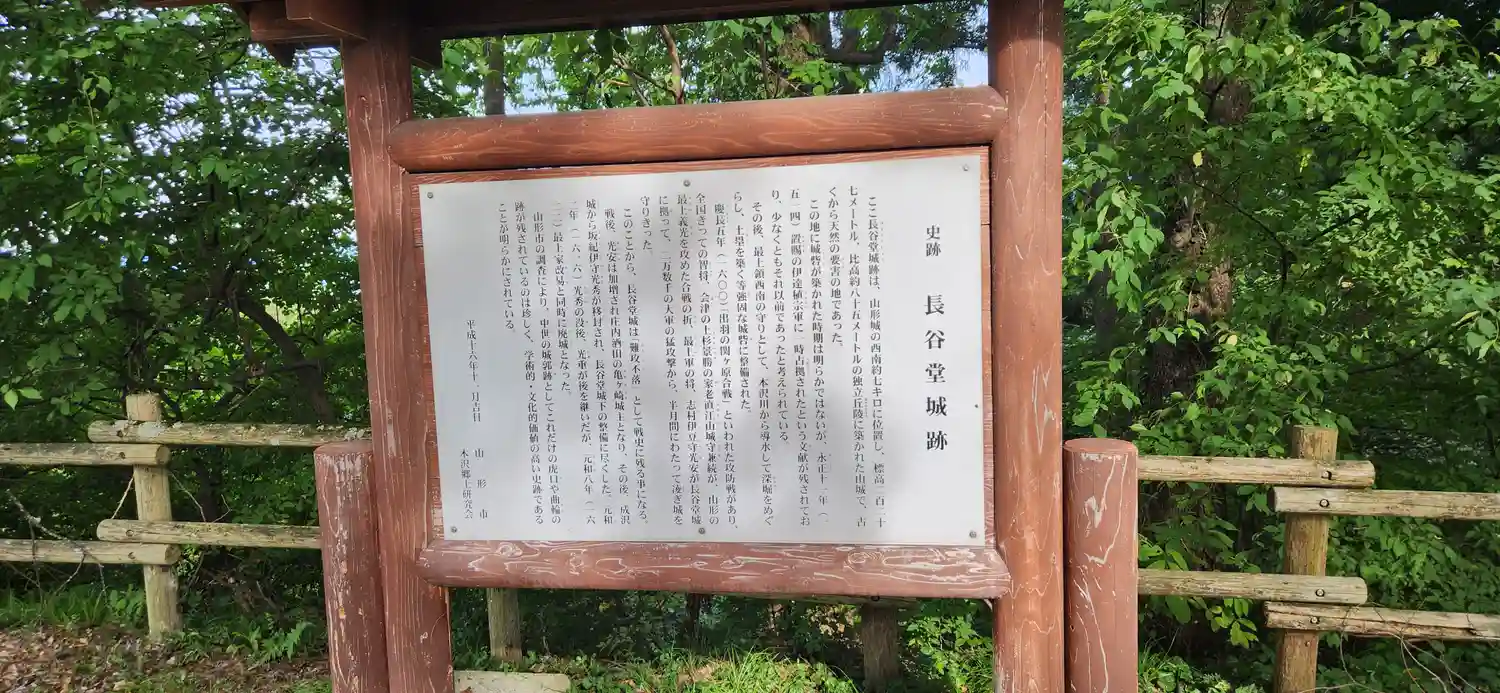 史跡　長谷堂城跡
ここ長谷堂城跡は、山形城の西南約七キロに位置し、標高二百二十
七メートル、比高約八十五メートルの独立丘陵に築かれた山城で、古
くから天然の要害の地であった。
この地に城砦が築かれた時期は明らかではないが、永正十一年（一
五一四）置賜の伊達稙宗軍に一時占拠されたという文献が残されてお
り、少なくともそれ以前であったと考えられている。
その後、最上領西南の守りとして、本沢川から導水して深堀をめぐ
らし、土塁を築く等強固な城砦に整備された。
慶長五年（一六〇〇）出羽の関ヶ原合戦」といわれた攻防戦があり、
全国きっての智将、会津の上杉景勝の家老直江山城守兼続が、山形の
最上義光を攻めた合戦の折、最上軍の将、志村伊豆守光安が長谷堂城
に拠って、二万数千の大軍の猛攻撃から、半月間にわたって凌ぎ城を
守りきった。
このことから、長谷堂城は「難攻不落」として戦史に残る事になる。
戦後、光安は加増され庄内酒田の亀ヶ崎城主となり、その後、成沢
城から坂紀伊守光秀が移封され、長谷堂城下の整備に尽くした。元和
二年（一六一六）光秀の没後、光重が後を継いだが、元和八年（一六
二二）最上家改易と同時に廃城となった。
山形市の調査により、中世の城郭跡としてこれだけの虎口や曲輪の
跡が残されているのは珍しく、学術的・文化的価値の高い史跡である
ことが明らかにされている。
平成十六年十一月吉日
山形市
本沢郷土研究会